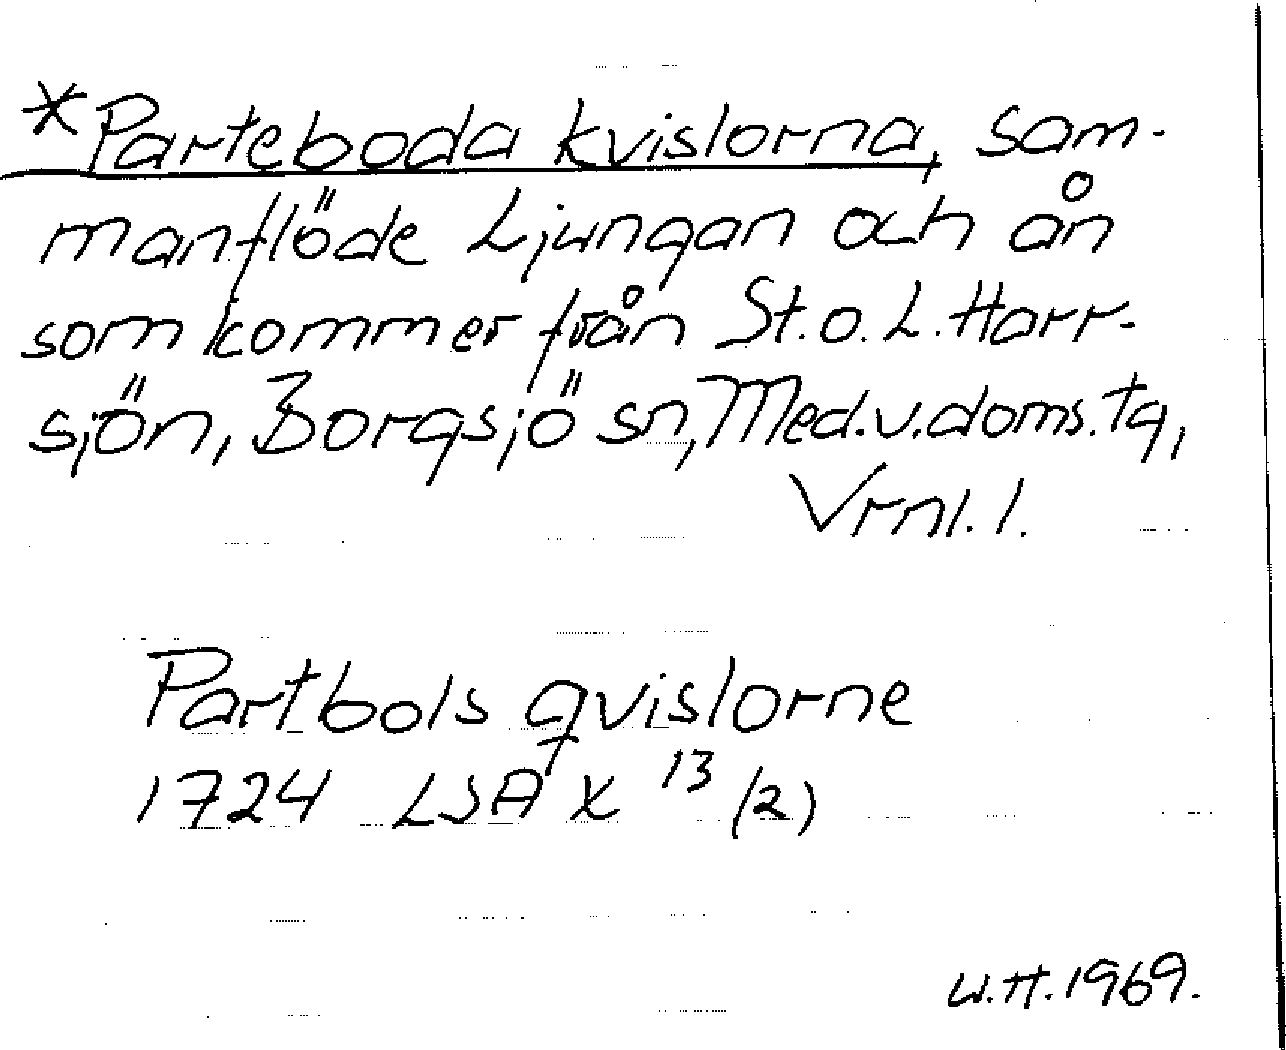 *Parteboda kvislorna, sam-
manflöde Ljungan och ån
som kommer från St. o. L. Harr-
sjön, Borgsjö sn, Med. v. doms. tg,
Vrnl. l.
Partbols qvislorne
1724 LSA X 13 (2)
W.H. 1969.